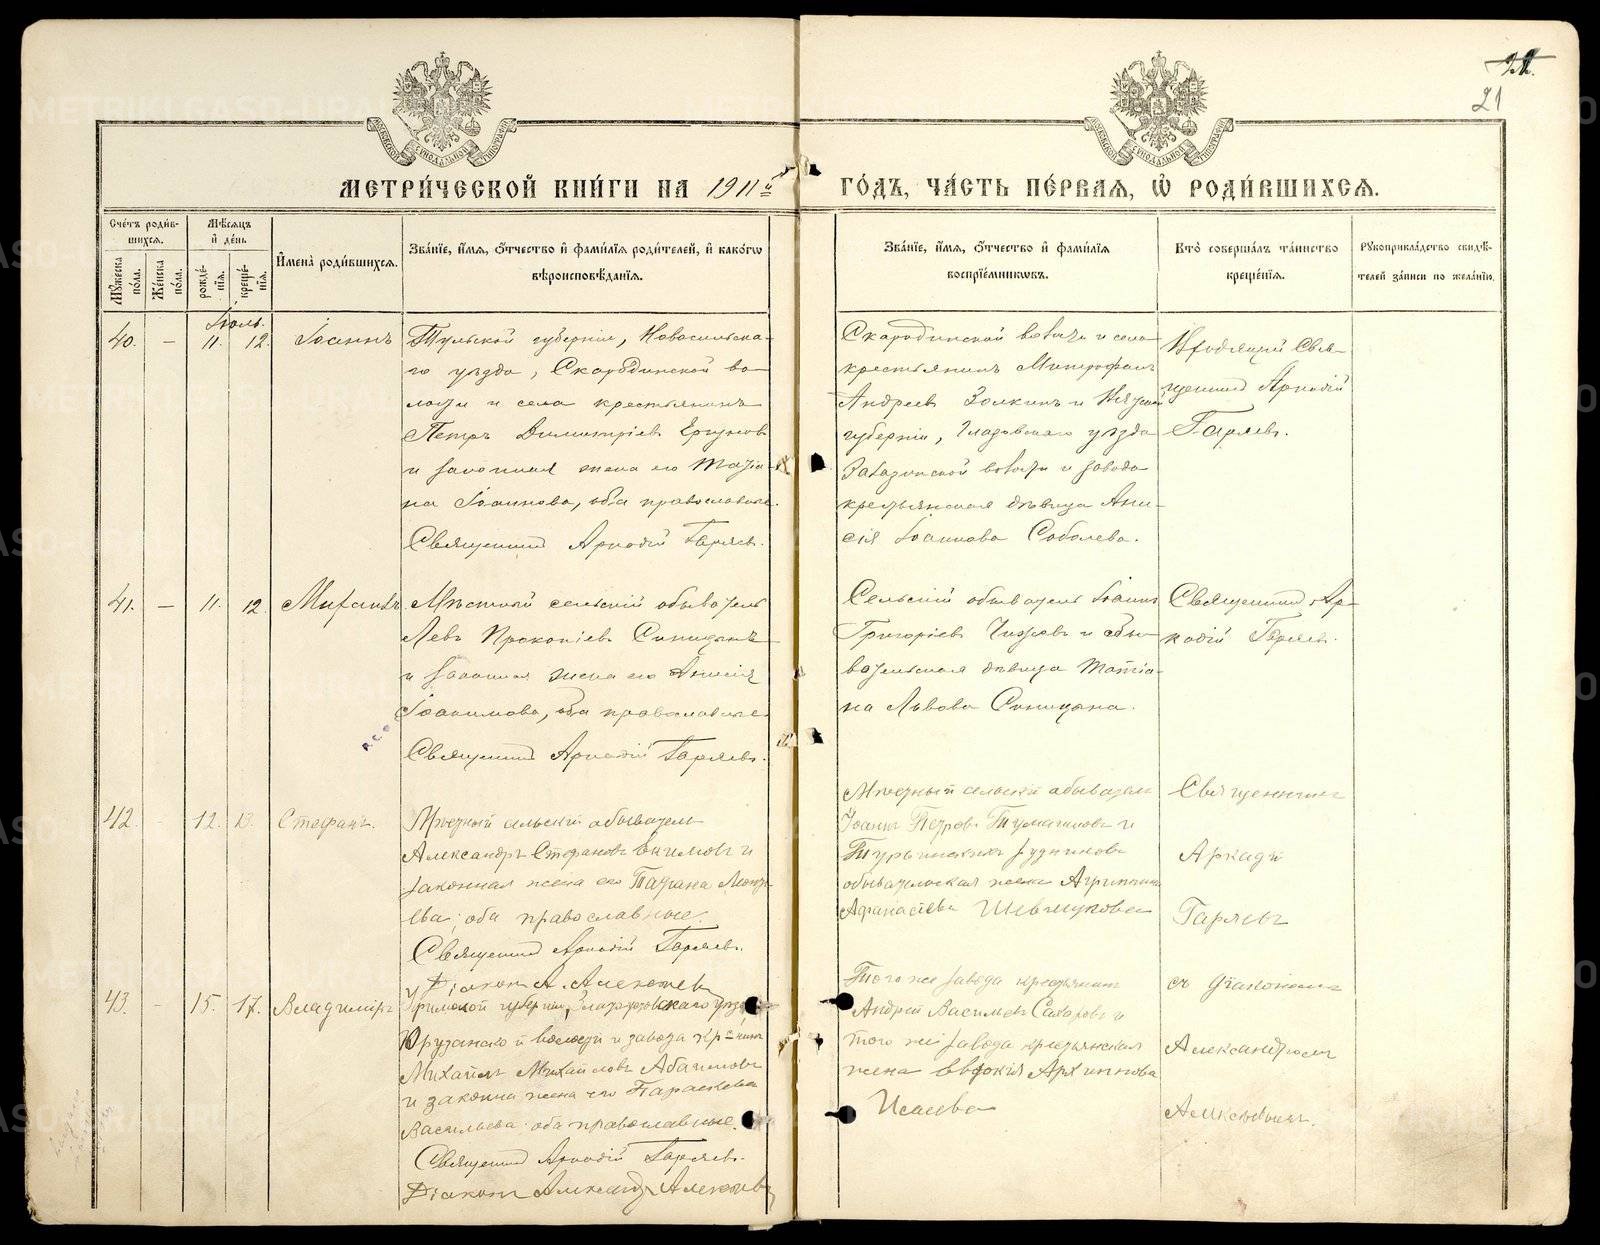 21
МЕТРИ́ЧЕСКОЙ КНИ́ГИ НА 1911й
ГО́ДЪ, ЧА́СТЬ ПЕ́РВАЯ, Ѡ҆ РОДИ́ВШИХСЯ.
Сче́тъ роди́в-
шихся.
Мꙋ́жеска
по́ла.
Же́нска
по́ла.
Мѣ́сяцъ
и҆ де́нь
рожде́-
нїя.
креще́-
нїя.
И҆мена̀ роди́вшихся.
Зва́нїе, и҆́мя, ѻ҆́тчество и҆ фами́лїя роди́телей, и҆ како́гѡ
вѣроисповѣ́данїя.
Зва́нїе, и҆́мя, ѻ҆́тчество и҆ фами́лїя
воспрїе́мниковъ.
Кто̀ соверша́лъ та́инство
креще́нїя.
Рꙋкоприкла́дство свидѣ́-
телей за́писи по жела́нїю.
Іюль.
40. – 11. 12. Іоаннъ
Тульской губерніи, Новосильска-
го уѣзда, Скородинской во-
лости и села крестьянинъ
Петръ Димитріевъ
и законная жена его Матіа-
на Іоаннова, оба православные.
Священникъ Аркадій Гаряевъ.
Скородинской волости и села
крестьянинъ Митрофанъ
Андреевъ Золкинъ и
губерніи, уѣзда
волости и завода
крестьянская дѣвица Ани-
сія Іоаннова Соболева.
Приходящій Свя-
щенникъ Аркадій
Гаряевъ.
41. – 11. 12. Михаилъ
Мѣстный сельскій обыватель
Левъ Прокопіевъ Синицынъ
и законная жена его Анисія
Іоакимова, оба православные
Священникъ Аркадій Гаряевъ.
Сельскій обыватель Іоаннъ
Григоріевъ и обы-
вательская дѣвица Матіа-
на Львова Синицына.
Священникъ Ар-
кадій Гаряевъ.
42. – 12. 13. Стефанъ.
Мѣстный сельскій обыватель
Александръ Стефановъ Екимовъ и
законная жена его Татіана Леонть-
ева, оба православные.
Священникъ Аркадій Гаряевъ.
Діаконъ А. Алексѣевъ
Мѣстный сельскій обыватель
Іоаннъ Петровъ и
Турьинскихъ рудниковъ
обывательская жена Агриппина
Афанасіева Шевлукова
Священникъ
Аркадій
Гаряевъ
43. – 15. 17. Владиміръ
Уфимской губерніи, Златоустовскаго уѣзда
Юрузанской волости и завода кр-нинъ
Михаилъ Михайловъ Абаимовъ
и законная жена его Параскева
Васильева оба православные.
Священникъ Аркадій Гаряевъ.
Діаконъ Александръ Алексѣевъ
Того же завода крестьянинъ
Андрей Васильевъ Сахаровъ и
того же завода крестьянская
жена Евдокія Архиппова
Исаева
съ діакономъ
Александромъ
Алексѣевымъ.